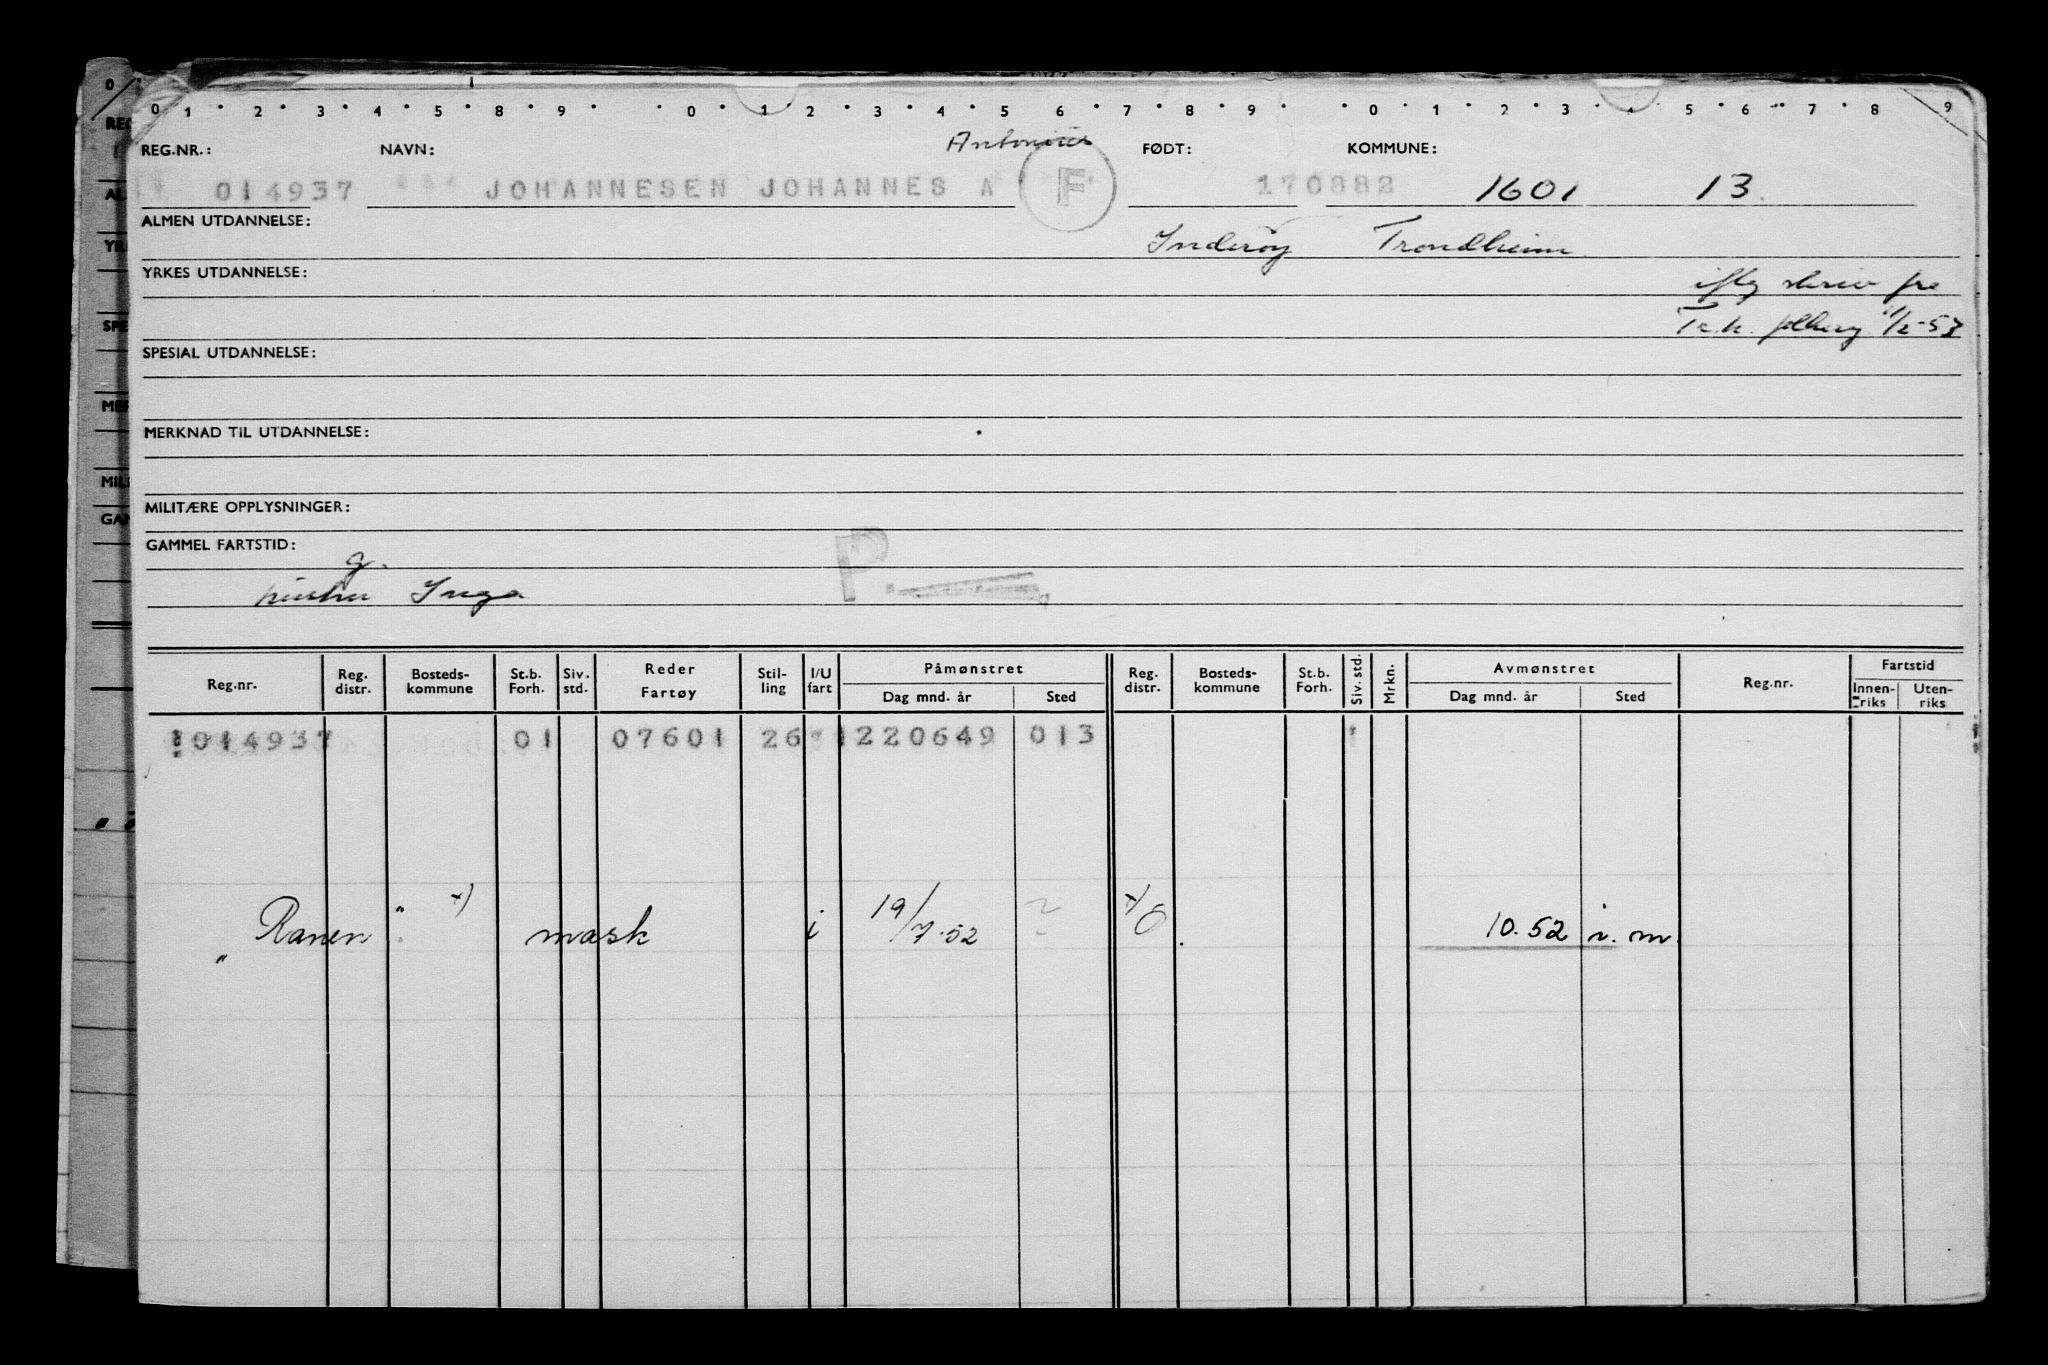 0 1 2 3 4 5 8 9 0 1 2 3 4 5 6 7 8 9 0 1 2 3 4 5 6 7 8 9
REG.NR.: NAVN: Antonius FØDT: KOMMUNE:
014937 JOHANNESEN JOHANNES A F 170882 1601 13.
ALMEN UTDANNELSE:
Inderøy Trondheim
YRKES UTDANNELSE:
iflg skriv fra
Tr.h. 11/2-53
SPESIAL UTDANNELSE:
MERKNAD TIL UTDANNELSE:
MILITÆRE OPPLYSNINGER:
GAMMEL FARTSTID:
g.
hustru Inga
P.
Reg.nr. Reg. distr. Bosteds-kommune St.b. Forh. Siv. std. Reder Fartøy Stil-ling I/U fart Påmønstret Dag mnd. år Sted Reg. distr. Bosteds-kommune St.b. Forh. Siv. std. Mrkn. Avmønstret Dag mnd. år Sted Reg.nr. Fartstid Innen-riks Uten-riks
014937 01 07601 26 220649 013
"Ranen" x) mask i 19/7.52 x) 10.52 i.m.